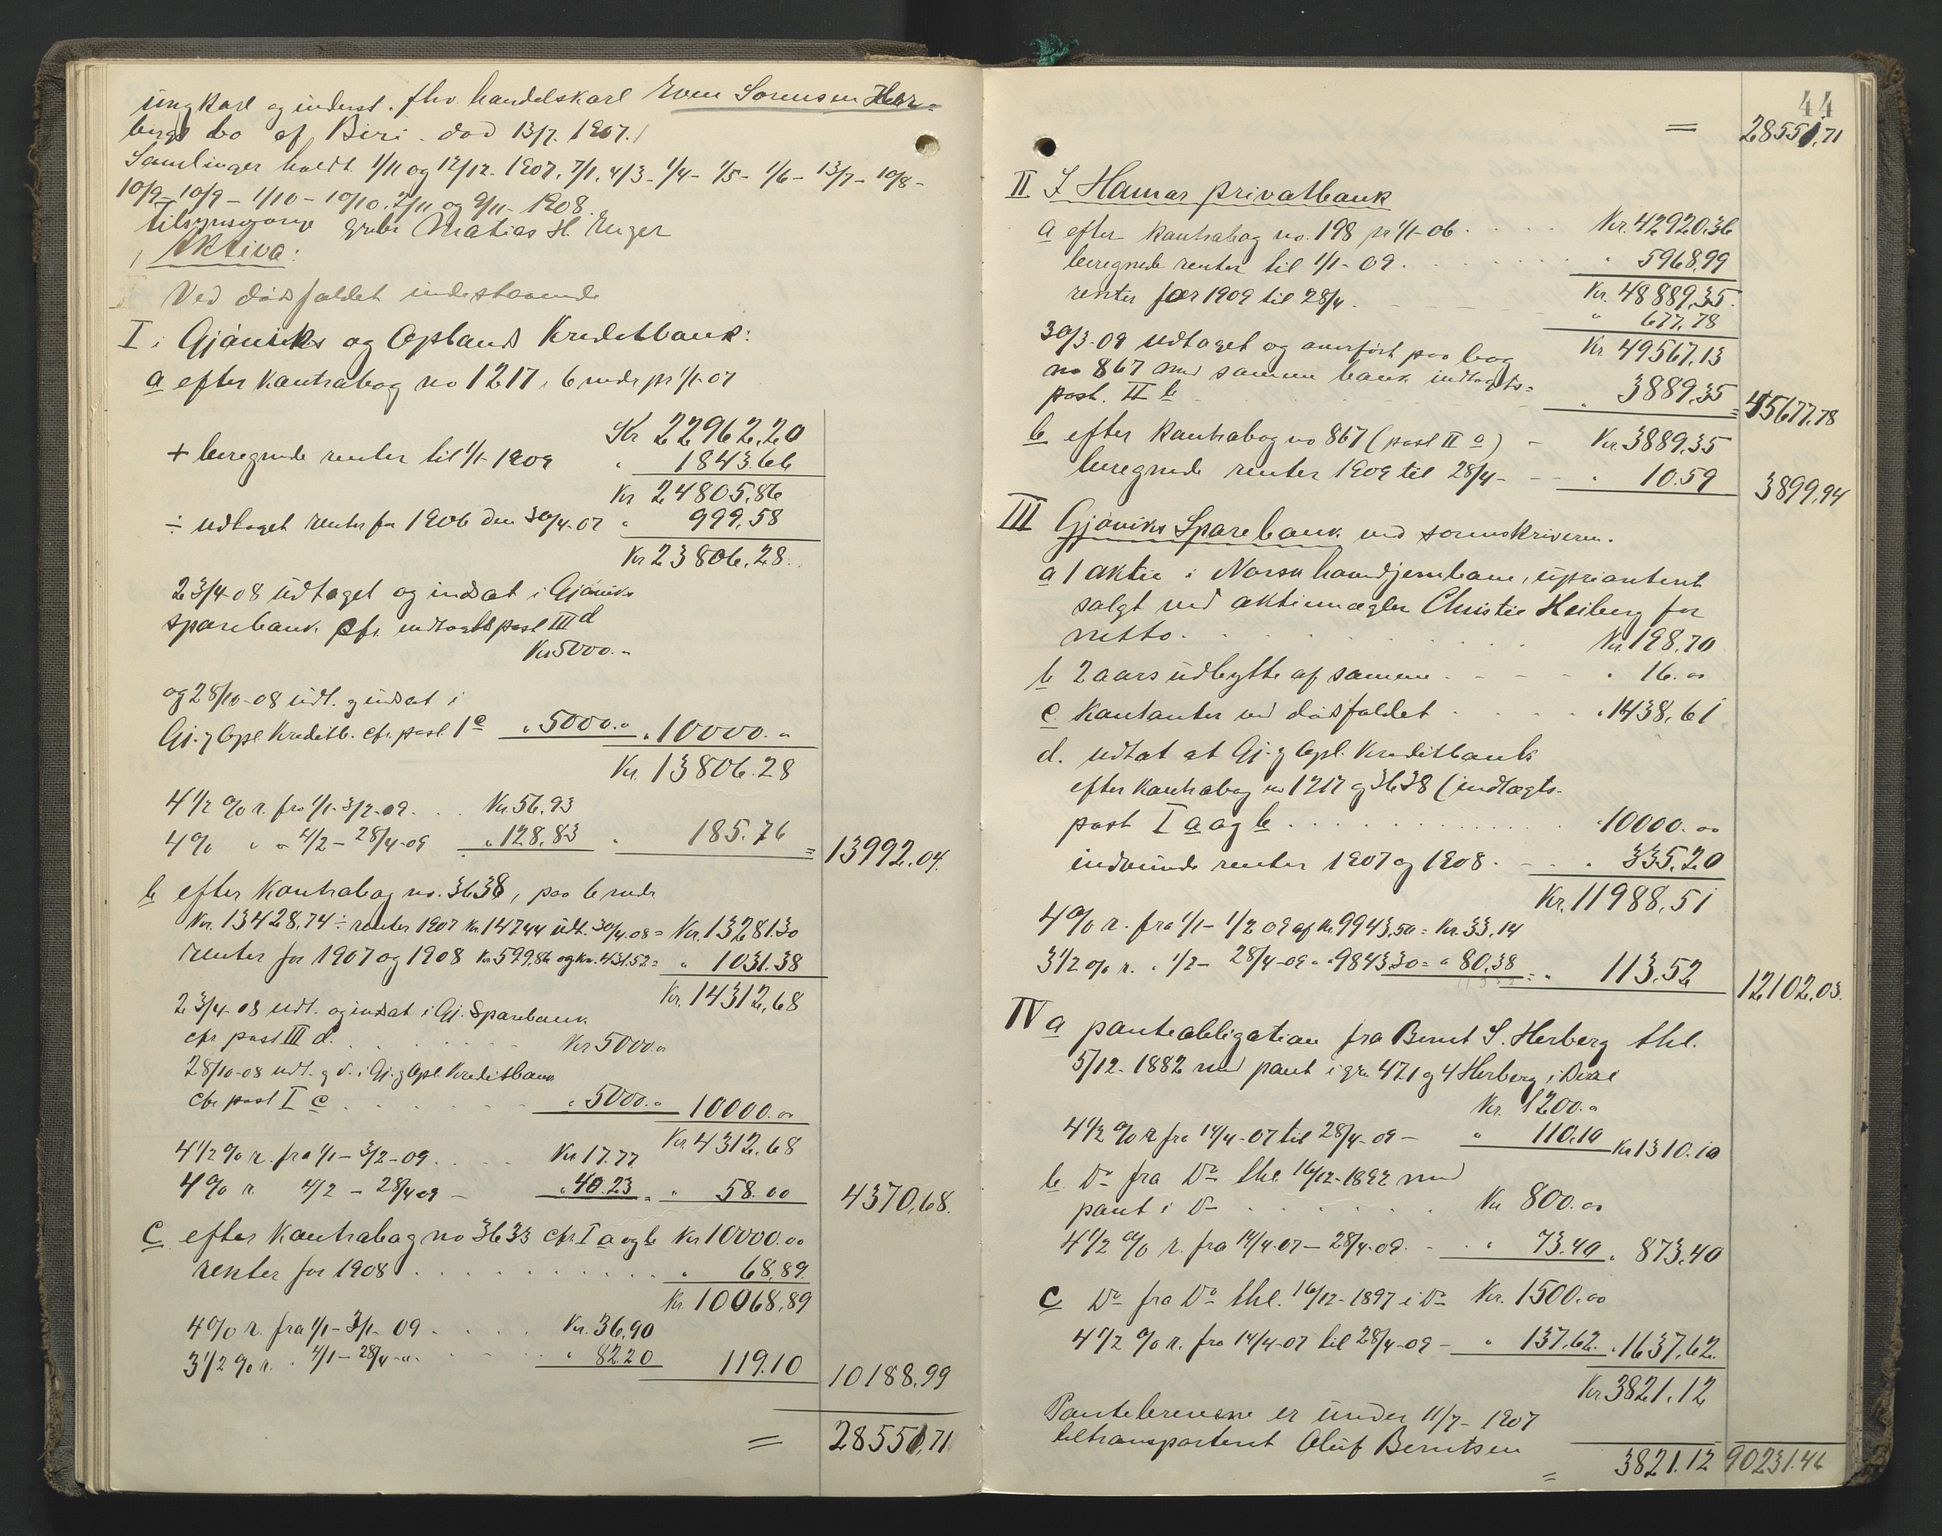 ungkarl og inderst. fhv. handelskarl Even Sørensen Her-
bergs bo af Biri. død 13/7. 1907.
Samlinger holdt 1/11 og 12/12. 1907. 7/1. 4/3 - 1/4 - 1/5 - 1/6 - 13/7 - 10/8 -
10/9 - 10/9 - 1/10 - 10/10. 2/11 og 9/11 - 1908.
Tilsynsmand Matias H. Enger
Aktiva:
Ved dødsfaldet indestaaende
I i Gjøviks og Oplands Kreditbank:
a efter Kontrabog no 1217, 6 mdr pr 1/1-07
Kr 22962.20
+ beregnede renter til 1/1-1909 " 1843.66
Kr 24805.86
÷ udtaget renter for 1906 den 30/4-07 " 999.58
Kr 23806.28.
23/4-08 udtaget og indsat i Gjøviks
sparebank cfr. indtægtspost III d
Kr 5000.-
og 28/10-08 udt. og indsat i
Gj. og Opl. Kreditb. cfr. post I c " 5000.- " 10000.-
Kr. 13806.28
4 1/2 % r. fra 1/1 - 3/2-09. . . Kr. 56.93
4 % " " 4/2 - 28/4-09 " 128.83 " 185.76 = 13992.04.
b efter Kontrabog no. 3638, paa 6 mdr
Kr. 13428,74 ÷ renter 1907 Kr 147.44 udt. 30/4-08 = Kr. 13281.30
renter for 1907 og 1908 Kr 599.86 og Kr. 431.52 = " 1031.38
Kr. 14312,68
23/4-08 udt. og indsat i Gj. Sparebank
cfr post III d. . . . Kr 5000.00
28/10-08 udt. og do. i Gj. og Opl Kreditbank
cfr post I c . . . . " 5000.- 10000.00
Kr 4312.68
4 1/2 % r. fra 1/1 - 3/2-09. . . . Kr 17.77
4 % r. 4/2 - 28/4 09 - " 40.23 = " 58.00 4370,68.
c efter Kontrabog no 3633 cfr I a og b Kr 10000.00
renter for 1908 . . . . " 68,89.
Kr. 10068,89
4 % r. fra 1/1 - 3/1-09 . . . . Kr. 36,90
3 1/2 % r. " 4/1 - 28/4 - " . . . " 82.20 119.10 10188,99
= 28551,71
44
= 28551,71
II I Hamar privatbank
a efter kontrabog no. 198 pr 1/1-06. . . . Kr. 42920.36
beregnede renter til 1/1-09. . . . " 5968,99
Kr. 48889,35.
renter for 1909 til 28/4. " 677,78
Kr 49567,13
30/3-09 udtaget og overført paa bog
no 867 med samme bank indtægts-
post. II b . . . . " 3889,35 = 45677,78
b efter kontrabog no 867 (post II a) - Kr. 3889,35
beregnede renter 1909 til 28/4 - - " 10.59 3899,94
III Gjøviks Sparebank ved sorenskriveren.
a 1 aktie i Norsk hovedjernbane, uprioritert
solgt ved aktiemægler Christie Heiberg for
netto. . . . Kr. 198.70
b 2 aars udbytte af samme. . . . " 16.00
c Kontanter ved dødsfaldet . . . . " 1438,61
d. udtat at Gj. og Opl. Kreditbank
efter kontrabog no 1217 og 3638 (indtægts-
post I a og b . . . . " 10000.00
indvundne renter 1907 og 1908. - - " 335,20
Kr. 11988,51
4 % r. fra 1/1 - 1/2 09 af Kr 9943,50 = Kr. 33.14
3 1/2 % r. " 1/2 - 28/4-09 " " 9843.30 = " 80,38 = " 113,52 12102,03.
IV a panteobligation fra Bernt S. Herberg thl.
5/12-1882 med pant i gr. 47.1 og 4 Herberg i Biri
Kr. 1200.-
4 1/2 % r fra 14/4-07 til 28/4-09 - " 110,10 Kr 1310.10
b Do fra Do thl 16/12-1892 med
pant i Do . . . . Kr 800.00
4 1/2 % r. fra 14/4-07 - 28/4-09. - " 73.40 " 873,40
c Do fra Do thl. 16/12-1897 i Do Kr. 1500.00
4 1/2 % r. fra 14/4-07 til 28/4-09 - " 137,62. " 1637,62.
Kr. 3821,12
Pantebrevene er under 11/7-1907
tiltransportert Oluf Berntsen
= 3821.12 90231.46